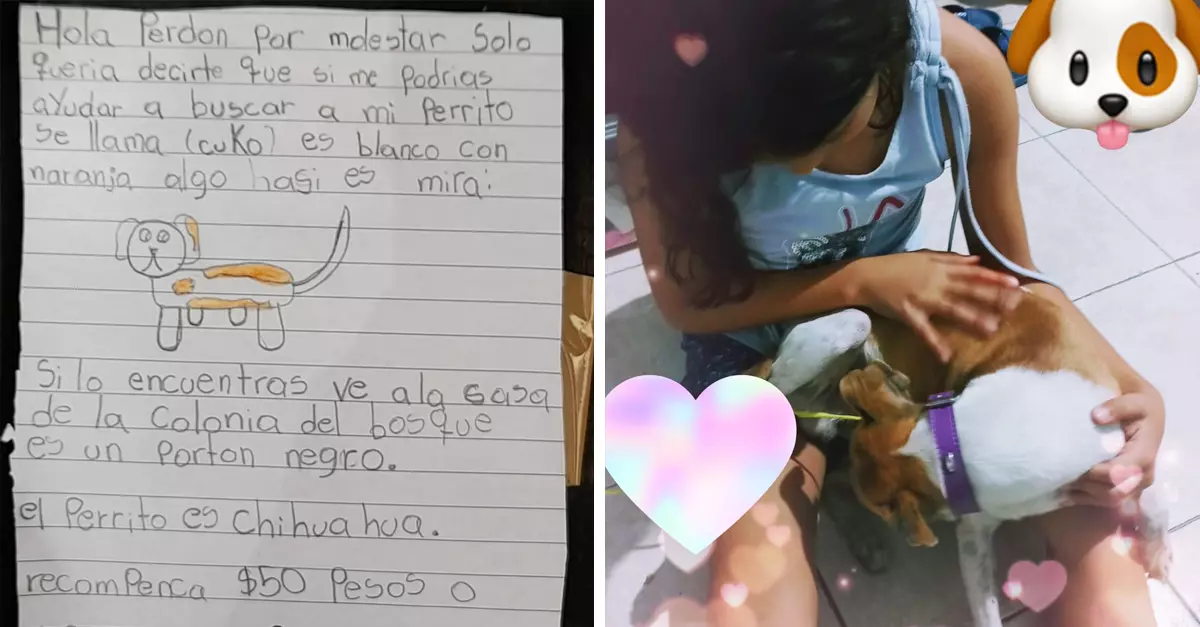 Hola Perdon por molestar Solo
queria decirte que si me podrias
ayudar a buscar a mi Perrito
se llama (cuko) es blanco con
naranja algo hasi es mira:
Si lo encuentras ve ala casa
de la Colonia del bosque
es un Porton negro.
el Perrito es Chihuahua.
recompenca $50 Pesos o